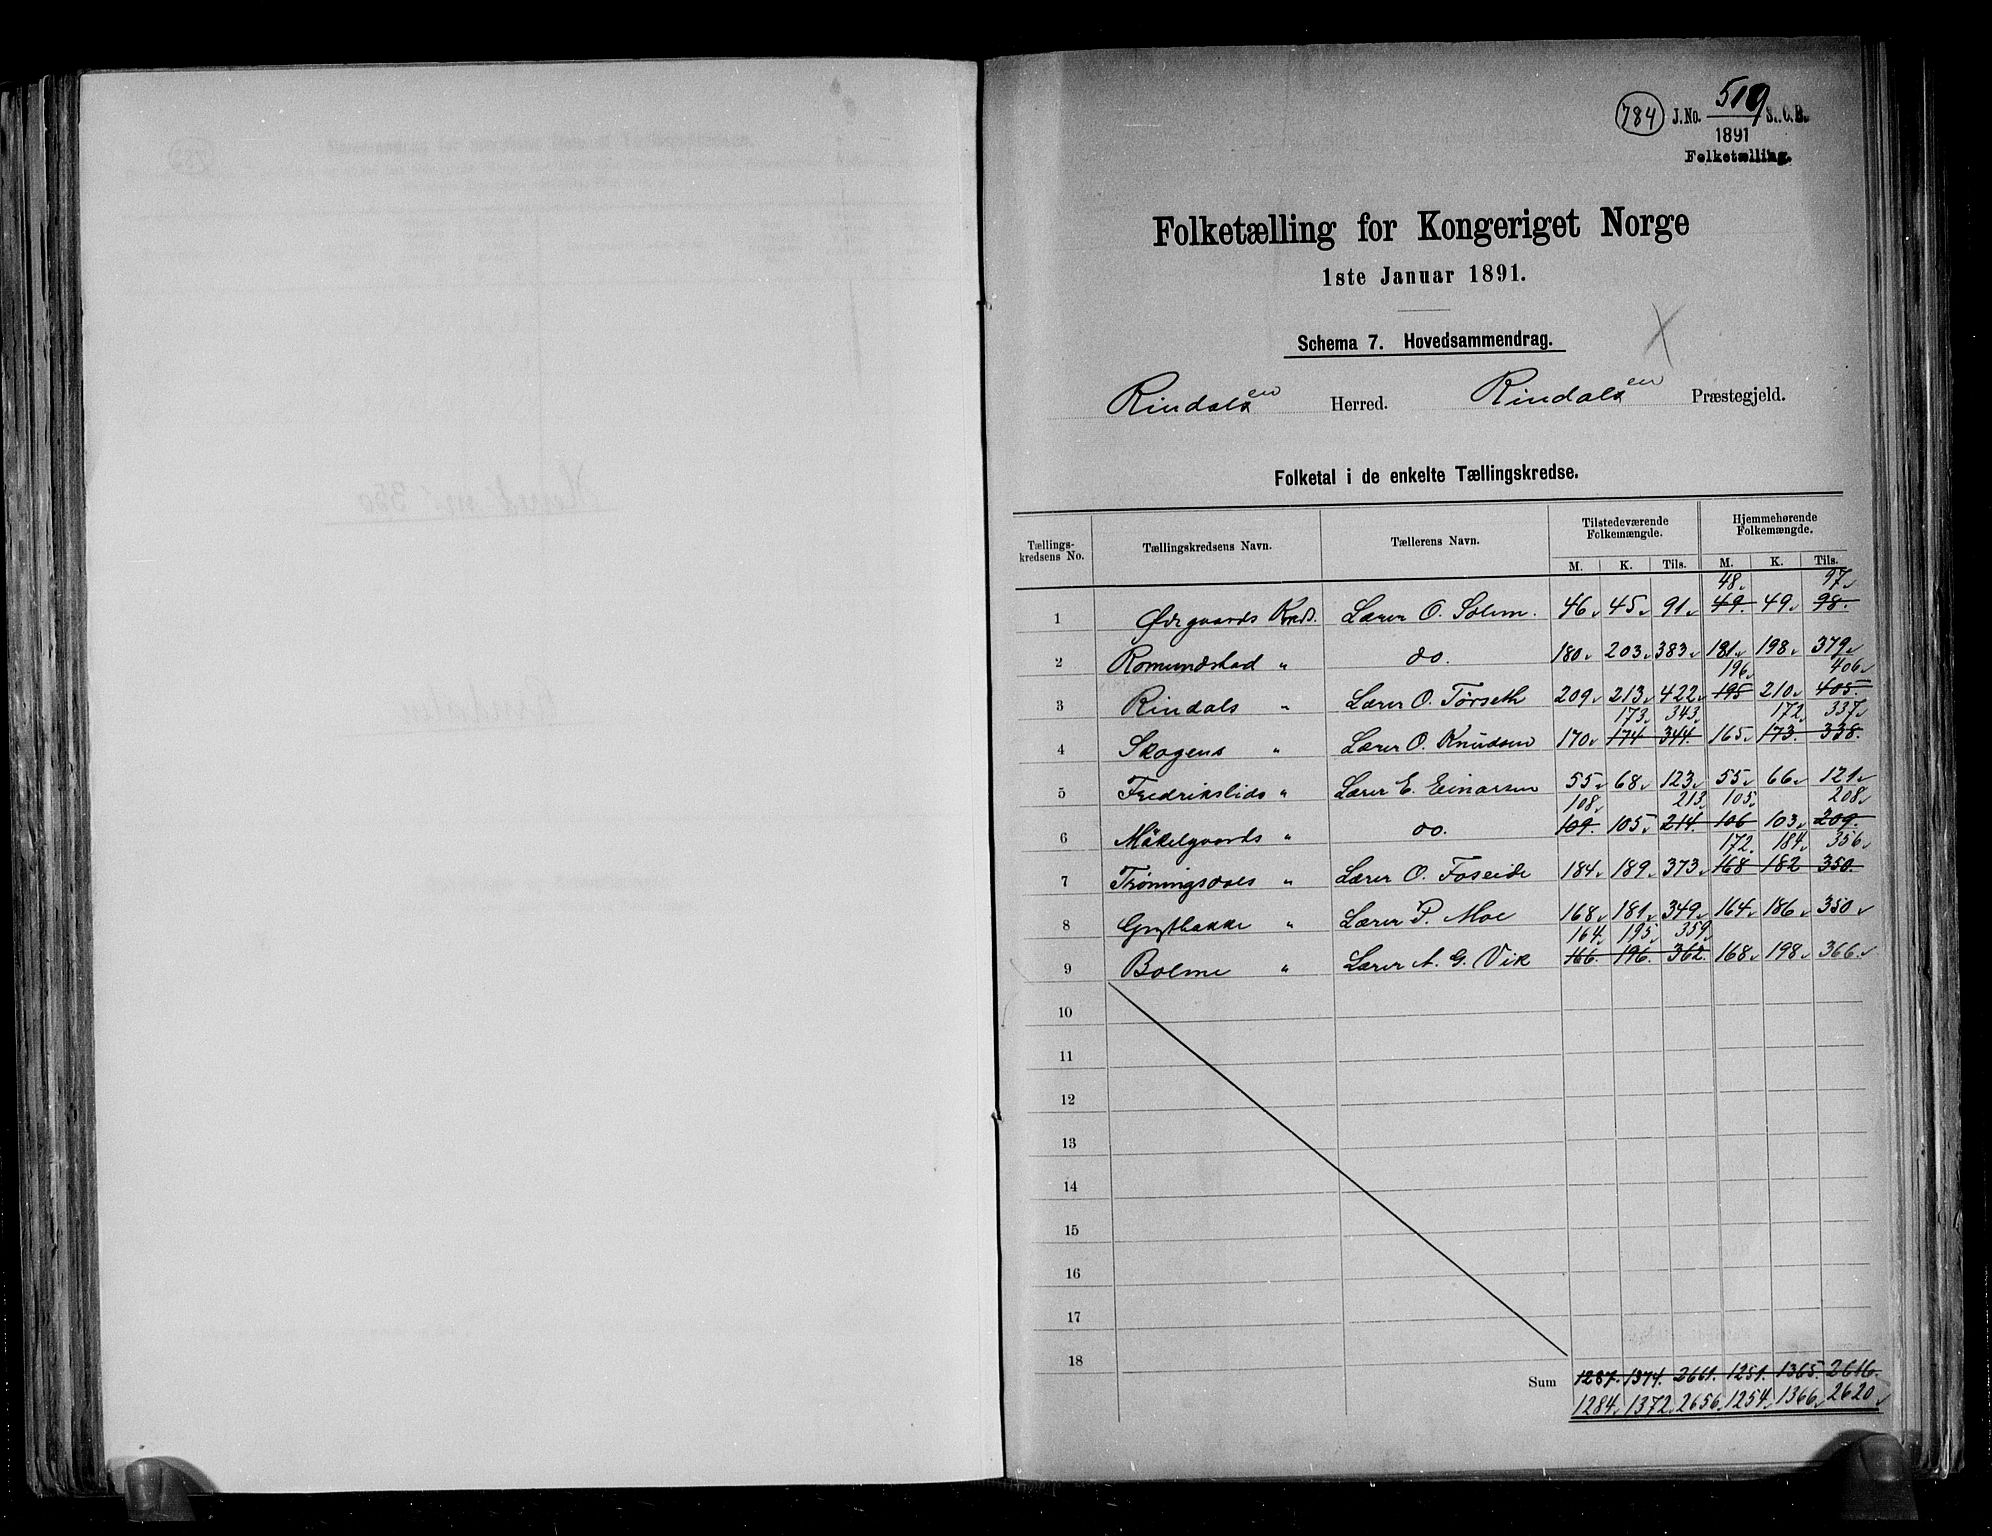 784 J.No. 519 S.C.B.
1891
Folketælling.
Folketælling for Kongeriget Norge
1ste Januar 1891.
Schema 7. Hovedsammendrag.
Rindalen Herred. Rindalen Præstegjeld.
Folketal i de enkelte Tællingskredse.
Tællings-kredsens No. Tællingskredsens Navn. Tællerens Navn. Tilstedeværende Folkemængde. Hjemmehørende Folkemængde.
M. K. Tils. M. K. Tils.
48 97
1 Ørgaards Kreds. Lærer O. Solem. 46 45 91 49 49 98.
2 Romundstad " do. 180 203 383 181 198 379
196 406
3 Rindals " Lærer O. Tørseth 209 213 422 195 210 405.
173 343 172 337
4 Skogens " Lærer O. Knudsen 170 174 344. 165 173. 338.
5 Fredrikslids " Lærer E. Einarsen 55 68 123 55 66 121
108 213 105 208
6 Mäkelgaards " do. 109. 105 214. 106 103 209.
172 184 356
7 Trøningsdals " Lærer O. Foseide 184 189 373 168 182 350.
8 Grytbakke " Lærer P. Moe 168 181 349 164 186 350
164 195 359
9 Bolme " Lærer A. G. Vik 166. 196. 362. 168 198 366
10
11
12
13
14
15
16
17
18
Sum 1287. 1374. 2661. 1251. 1365. 2616.
1284 1372 2656 1254 1366 2620